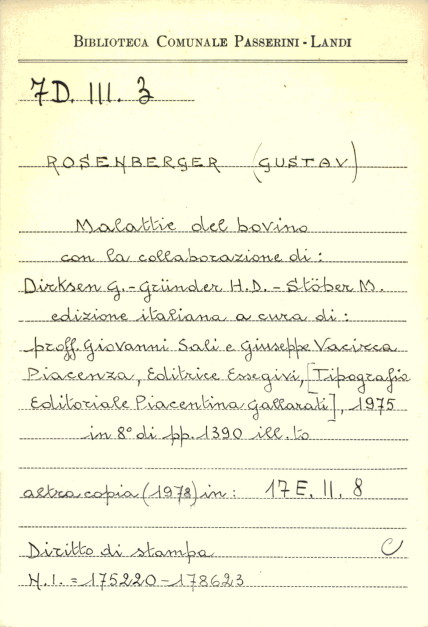 BIBLIOTECA COMUNALE PASSERINI-LANDI
7D. III. 3
ROSENBERGER (GUSTAV)
Malattie del bovino
con la collaborazione di:
Dirksen G.-Gründer H.D.-Stöber M.
edizione italiana a cura di:
proff. Giovanni Sali e Giuseppe Vacirca
Piacenza, Editrice Essegivi, [Tipografia
Editoriale Piacentina Gallarati], 1975
in 8° di pp. 1390 ill.to
altra copia (1978) in: 17 E. II. 8
Diritto di stampa C
N.I. = 175220-178623